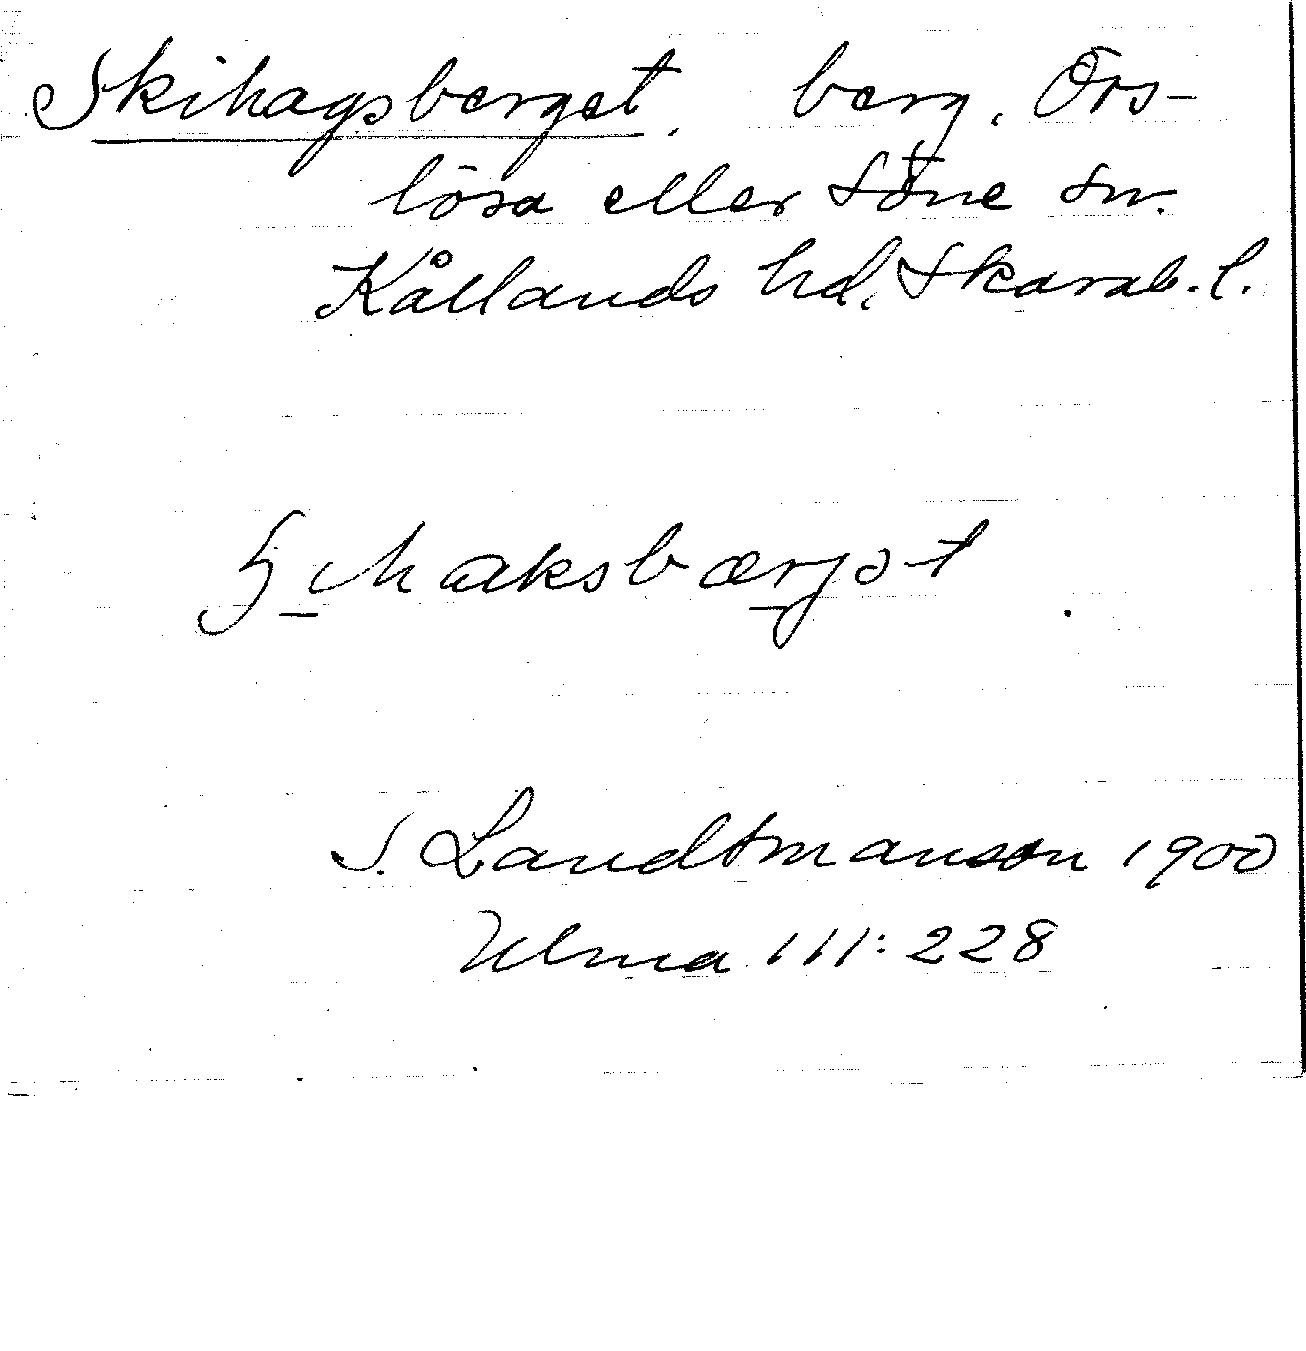 Skihagsberget, berg. Örs-
lösa eller Söne sn.
Kållands hd. Skarab. l.
ʂihaksbærjət
S. Landtmanson 1900
Ulma 111:228